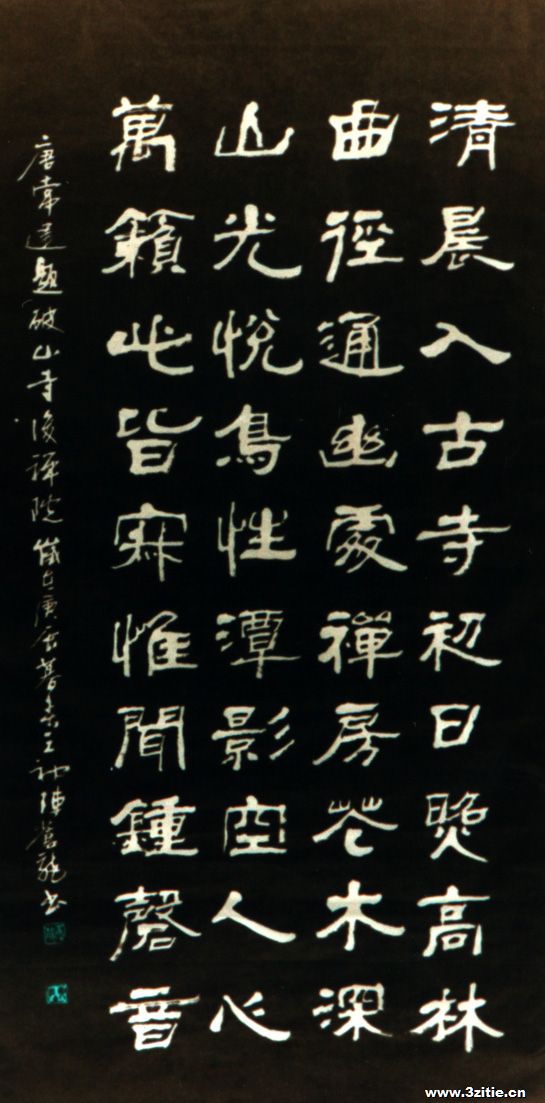 清晨入古寺初日照高林
曲徑通幽處禪房花木深
山光悅鳥性潭影空人心
萬籟此皆寂惟聞鍾磬音
唐常建題破山寺後禪院歲在庚暮陳龍書
www.3zitie.cn